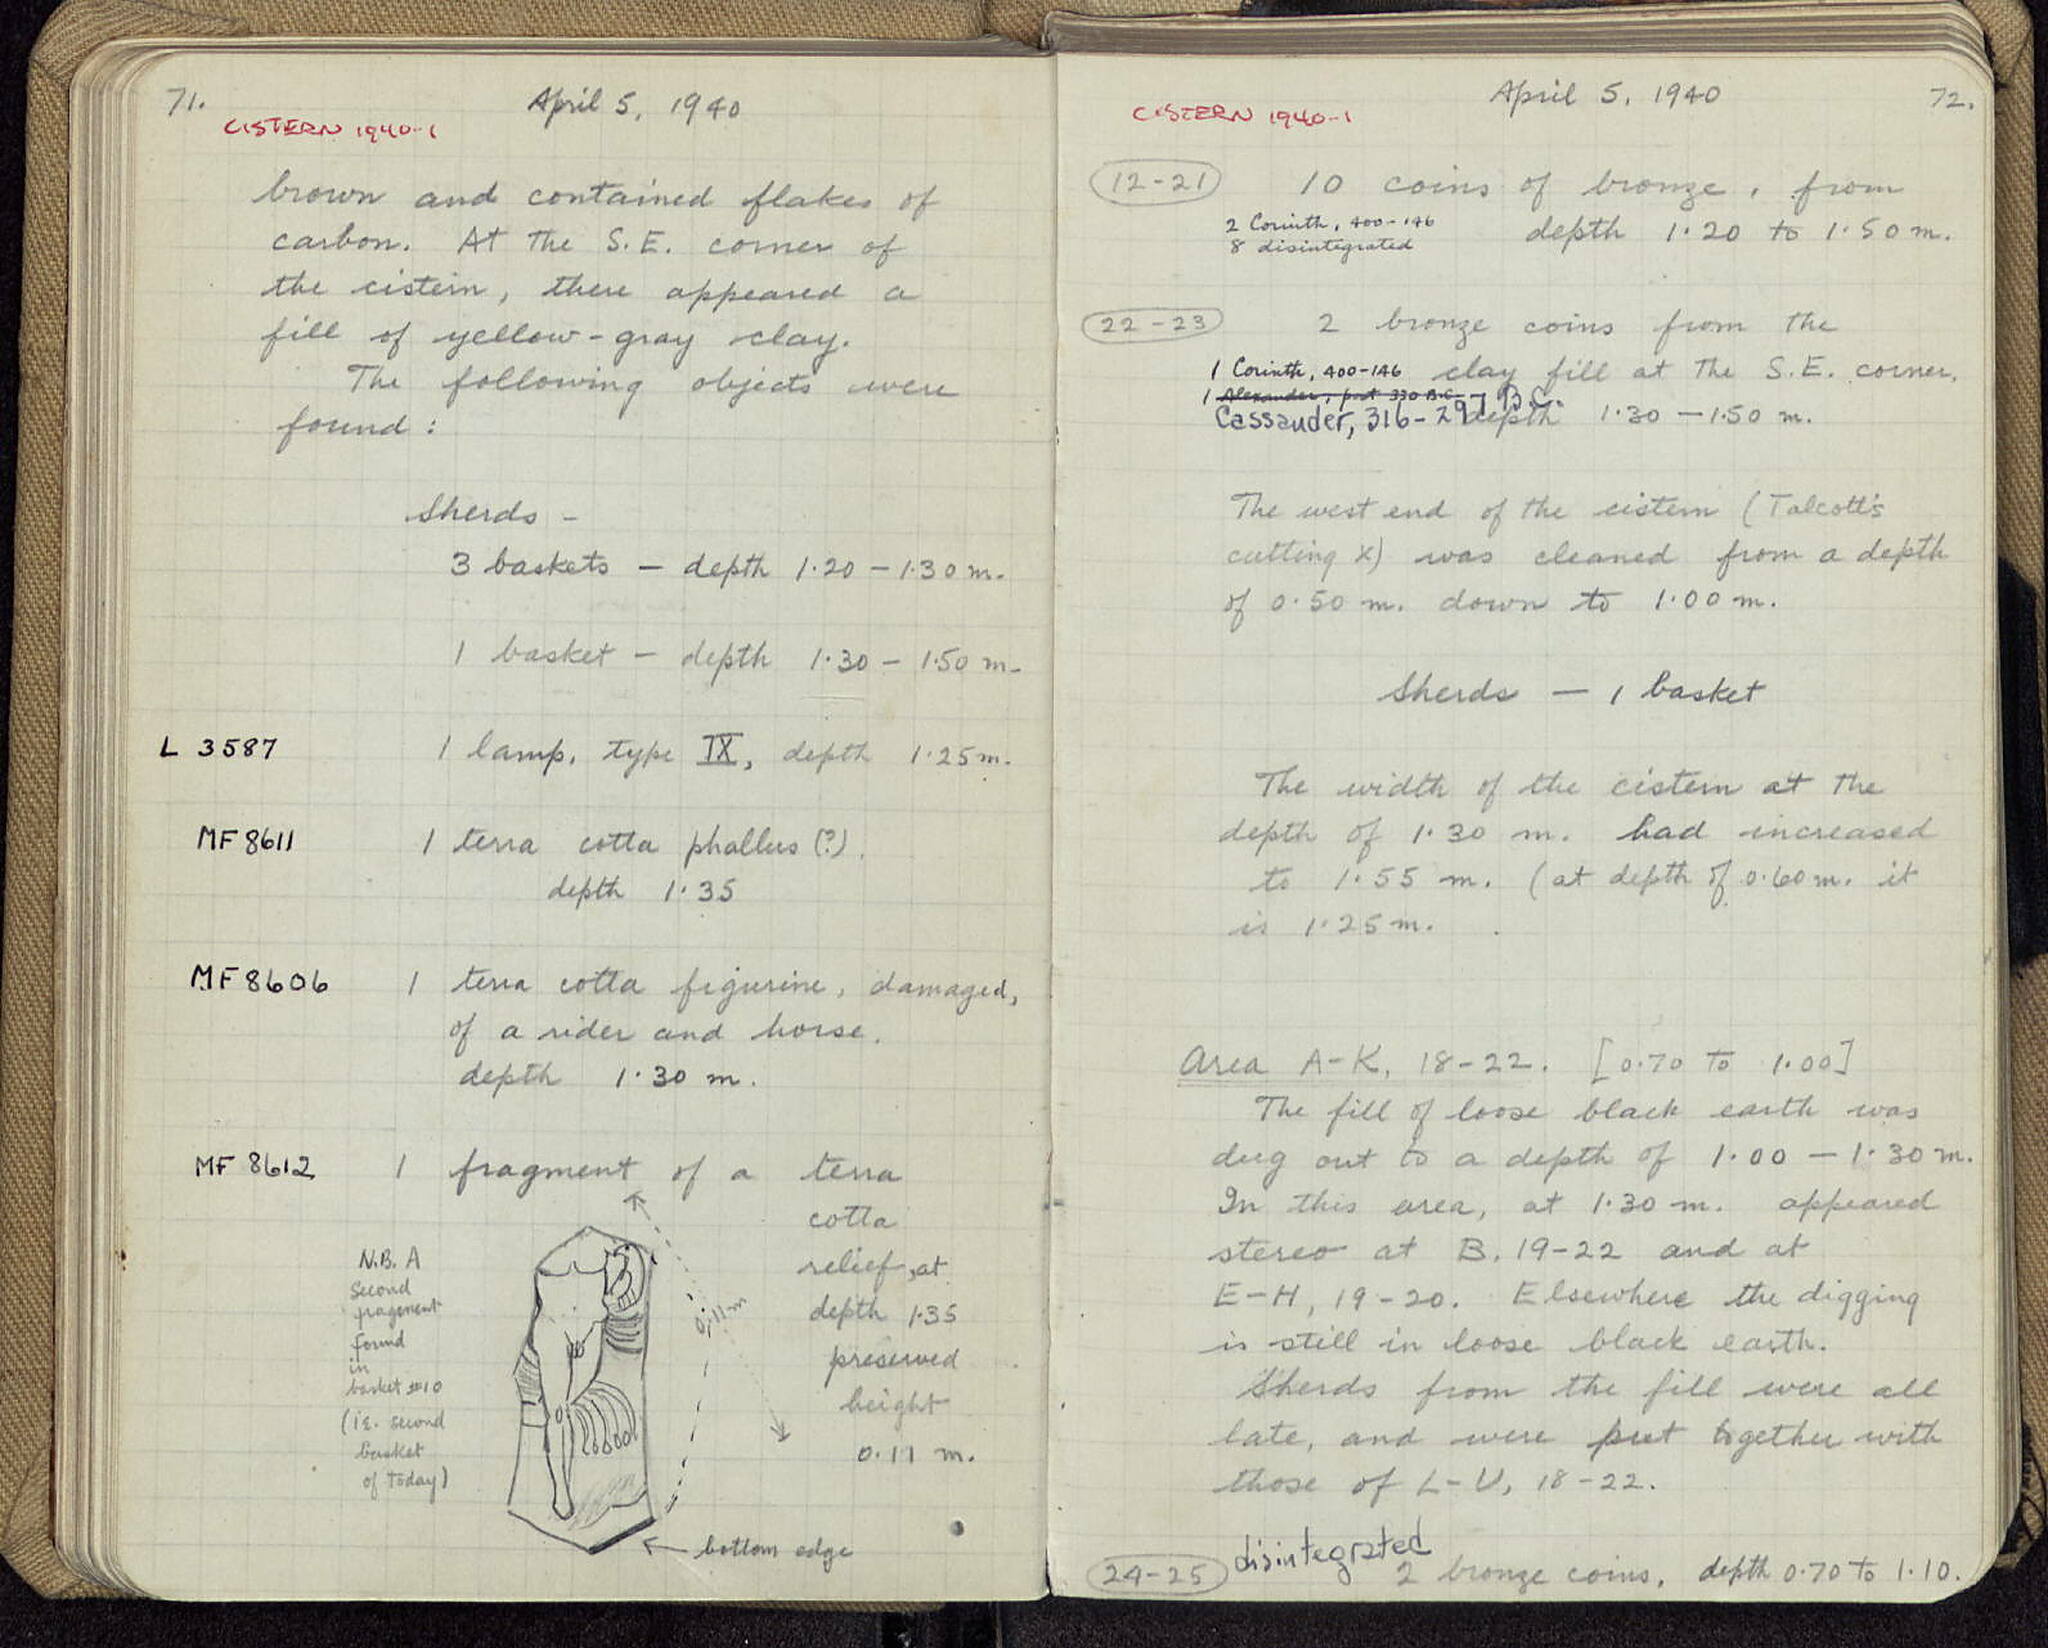 71.
April 5, 1940
CISTERN 1940-1
brown and contained flakes of
carbon. At the S.E. corner of
the cistern, there appeared a
fill of yellow-gray clay.
The following objects were
found:
Sherds -
3 baskets - depth 1.20 - 1.30 m.
1 basket - depth 1.30 - 1.50 m.
L 3587 1 lamp, type IX, depth 1.25 m.
MF 8611 1 terra cotta phallus (?).
depth 1.35
MF 8606 1 terra cotta figurine, damaged,
of a rider and horse.
depth 1.30 m.
MF 8612 1 fragment of a terra
cotta
relief, at
depth 1.35
preserved
height
0.11 m.
N.B. A
second
fragment
found
in
basket #10
(i.e. second
basket
of today)
0.11 m
bottom edge
April 5, 1940
72.
CISTERN 1940-1
12-21 10 coins of bronze, from
depth 1.20 to 1.50 m.
2 Corinth, 400-146
8 disintegrated
22-23 2 bronze coins from the
clay fill at the S.E. corner,
depth 1.30 - 1.50 m.
1 Corinth, 400-146
1 Alexander, post 330 B.C.
Cassander, 316-297 B.C.
The west end of the cistern (Talcott's
cutting X) was cleaned from a depth
of 0.50 m. down to 1.00 m.
Sherds - 1 basket
The width of the cistern at the
depth of 1.30 m. had increased
to 1.55 m. (at depth of 0.60 m. it
is 1.25 m.
Area A-K, 18-22. [0.70 to 1.00]
The fill of loose black earth was
dug out to a depth of 1.00 - 1.30 m.
In this area, at 1.30 m. appeared
stereo at B, 19-22 and at
E-H, 19-20. Elsewhere the digging
is still in loose black earth.
Sherds from the fill were all
late, and were put together with
those of L-U, 18-22.
disintegrated
24-25 2 bronze coins, depth 0.70 to 1.10.